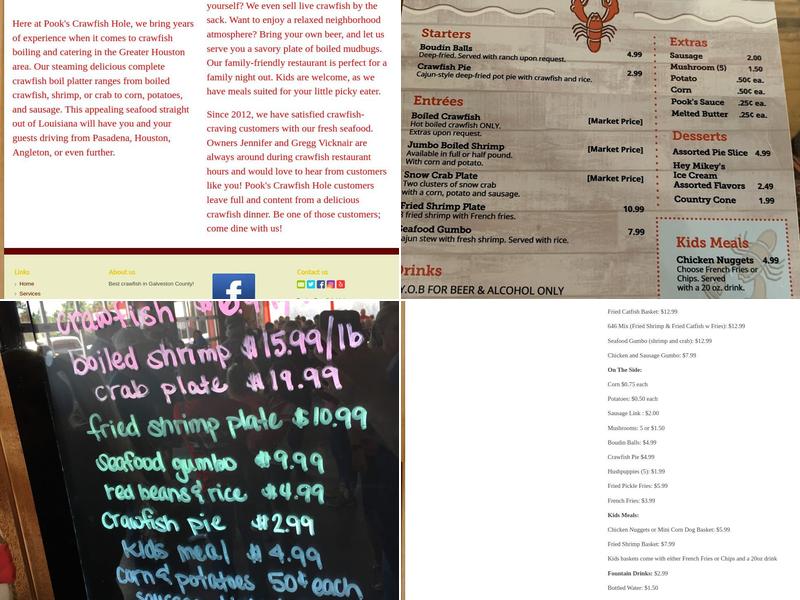 Here at Pook's Crawfish Hole, we bring years
of experience when it comes to crawfish
boiling and catering in the Greater Houston
area. Our steaming delicious complete
crawfish boil platter ranges from boiled
crawfish, shrimp, or crab to corn, potatoes,
and sausage. This appealing seafood straight
out of Louisiana will have you and your
guests driving from Pasadena, Houston,
Angleton, or even further.
yourself? We even sell live crawfish by the
sack. Want to enjoy a relaxed neighborhood
atmosphere? Bring your own beer, and let us
serve you a savory plate of boiled mudbugs.
Our family-friendly restaurant is perfect for a
family night out. Kids are welcome, as we
have meals suited for your little picky eater.
Since 2012, we have satisfied crawfish-
craving customers with our fresh seafood.
Owners Jennifer and Gregg Vicknair are
always around during crawfish restaurant
hours and would love to hear from customers
like you! Pook's Crawfish Hole customers
leave full and content from a delicious
crawfish dinner. Be one of those customers;
come dine with us!
Links
Home
Services
About us
Best crawfish in Galveston County!
f
Contact us
Starters
Boudin Balls 4.99
Deep-fried. Served with ranch upon request.
Crawfish Pie 2.99
Cajun-style deep-fried pot pie with crawfish and rice.
Entrées
Boiled Crawfish [Market Price]
Hot boiled crawfish ONLY.
Extras upon request.
Jumbo Boiled Shrimp [Market Price]
Available in full or half pound.
With corn and potato.
Snow Crab Plate [Market Price]
Two clusters of snow crab
with a corn, potato and sausage.
Fried Shrimp Plate 10.99
fried shrimp with French fries.
Seafood Gumbo 7.99
ajun stew with fresh shrimp. Served with rice.
Drinks
Y.O.B FOR BEER & ALCOHOL ONLY
Extras
Sausage 2.00
Mushroom (5) 1.50
Potato .50¢ ea.
Corn .50¢ ea.
Pook's Sauce .25¢ ea.
Melted Butter .25¢ ea.
Desserts
Assorted Pie Slice 4.99
Hey Mikey's
Ice Cream
Assorted Flavors 2.49
Country Cone 1.99
Kids Meals
Chicken Nuggets 4.99
Choose French Fries or
Chips. Served
with a 20 oz. drink.
crawfish
boiled shrimp $15.99/lb
crab plate $19.99
fried shrimp plate $10.99
Seafood gumbo $9.99
red beans & rice $4.99
Crawfish pie $2.99
Kids meal $4.99
corn & potatoes 50¢ each
Fried Catfish Basket: $12.99
646 Mix (Fried Shrimp & Fried Catfish w Fries): $12.99
Seafood Gumbo (shrimp and crab): $12.99
Chicken and Sausage Gumbo: $7.99
On The Side:
Corn $0.75 each
Potatoes: $0.50 each
Sausage Link : $2.00
Mushrooms: 5 or $1.50
Boudin Balls: $4.99
Crawfish Pie $4.99
Hushpuppies (5): $1.99
Fried Pickle Fries: $5.99
French Fries: $3.99
Kids Meals:
Chicken Nuggets or Mini Corn Dog Basket: $5.99
Fried Shrimp Basket: $7.99
Kids baskets come with either French Fries or Chips and a 20oz drink
Fountain Drinks: $2.99
Bottled Water: $1.50